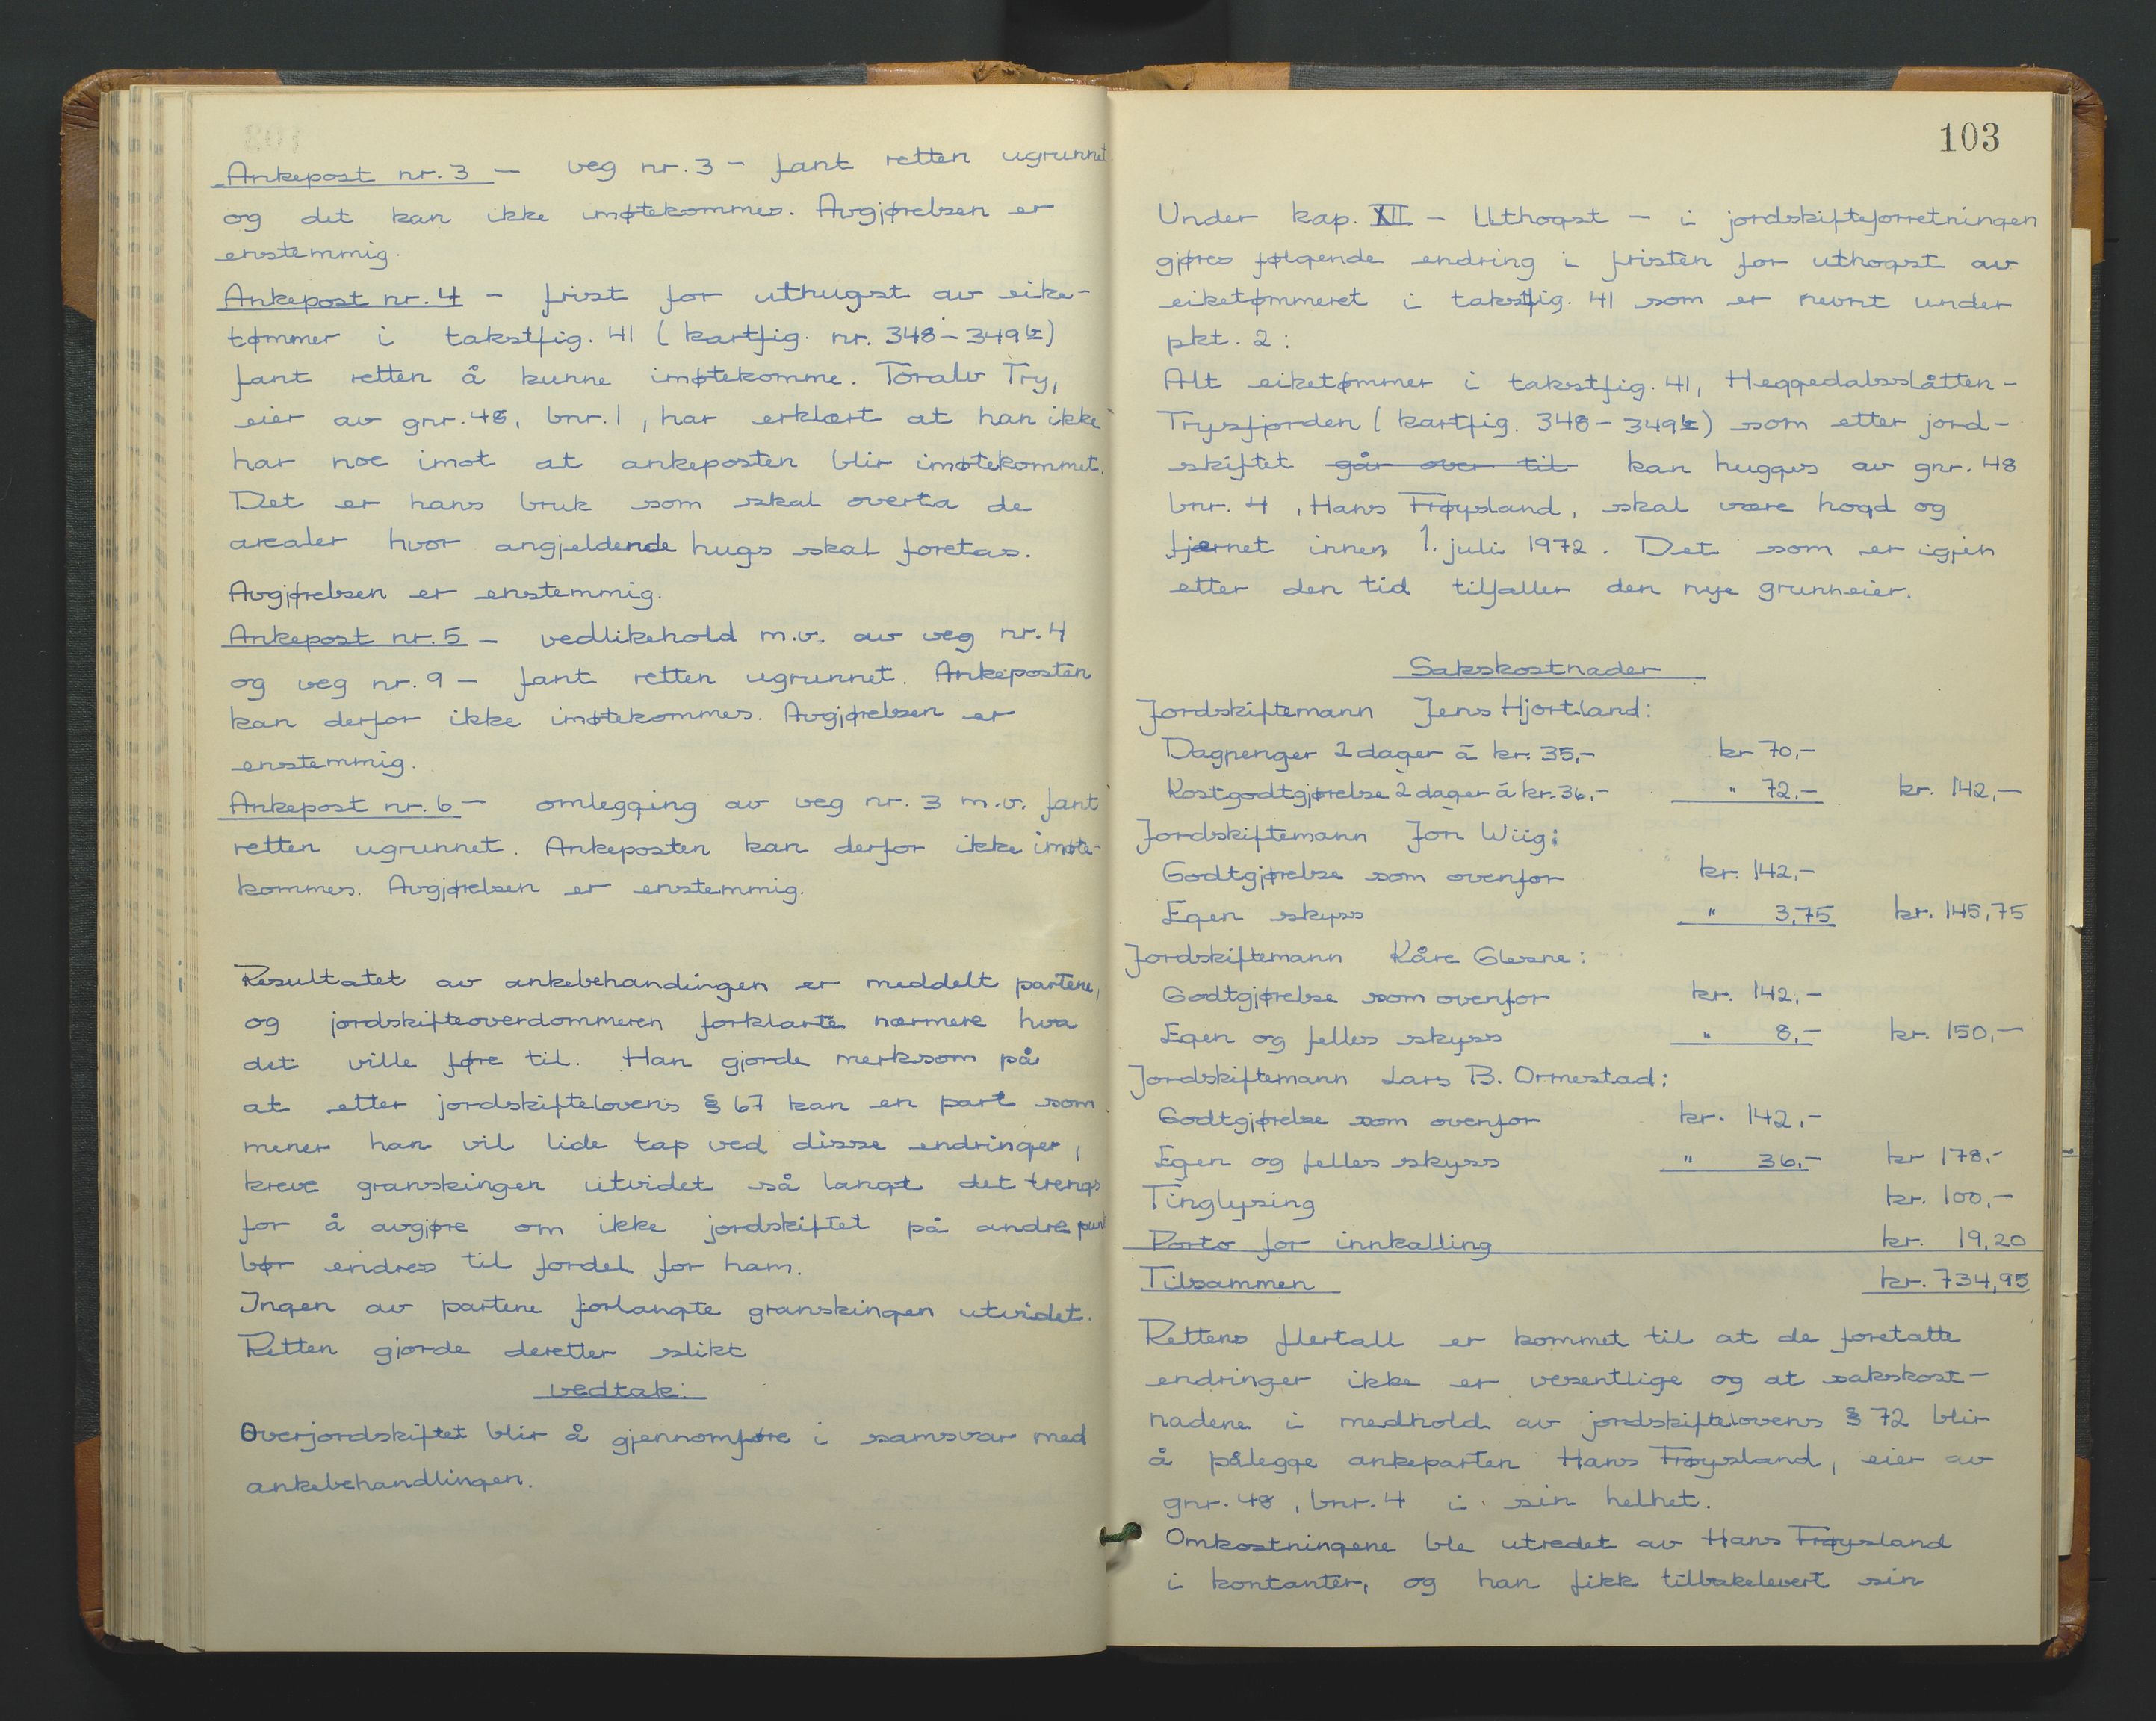 Ankepost nr. 3 — veg nr. 3 — fant retten ugrunnet
og det kan ikke imøtekommes. Avgjørelsen er
enstemmig.
Ankepost nr. 4 — frist for uthugst av eike-
tømmer i takstfig. 41 (kartfig. nr. 348 – 349b)
fant retten å kunne imøtekomme. Toralv Try,
eier av gnr. 48, bnr. 1, har erklært at han ikke
har noe imot at ankeposten blir imøtekommet.
Det er hans bruk som skal overta de
arealer hvor angjeldende hugs skal foretas.
Avgjørelsen er enstemmig.
Ankepost nr. 5 — vedlikehold m.v. av veg nr. 4
og veg nr. 9 — fant retten ugrunnet. Ankeposten
kan derfor ikke imøtekommes. Avgjørelsen er
enstemmig.
Ankepost nr. 6 — omlegging av veg nr. 3 m.v. fant
retten ugrunnet. Ankeposten kan derfor ikke imøte-
kommes. Avgjørelsen er enstemmig.
Resultatet av ankebehandingen er meddelt partene,
og jordskifteoverdommeren forklarte nærmere hva
det ville føre til. Han gjorde merksom på
at etter jordskiftelovens § 67 kan en part som
mener han vil lide tap ved disse endringer,
kreve granskingen utvidet så langt det trengs
for å avgjøre om ikke jordskiftet på andre punkt
bør endres til fordel for ham.
Ingen av partene forlangte granskingen utvidet.
Retten gjorde deretter slikt
vedtak:
Overjordskiftet blir å gjennomføre i samsvar med
ankebehandlingen.
103
Under kap. XII — Uthogst — i jordskifteforretningen
gjøres følgende endring i fristen for uthogst av
eiketømmeret i takstfig. 41 som er nevnt under
pkt. 2:
Alt eiketømmer i takstfig. 41, Heggedalsslåtten –
Trysfjorden (kartfig. 348 – 349b) som etter jord-
skiftet går over til kan hugges av gnr. 48
bnr. 4, Hans Frøysland, skal være hogd og
fjernet innen 1. juli 1972. Det som er igjen
etter den tid tilfaller den nye grunneier.
Sakskostnader
Jordskiftemann Jens Hjortland:
Dagpenger 2 dager á kr. 35,– kr 70,–
Kostgodtgjørelse 2 dager á kr. 36,– " 72,– kr. 142,–
Jordskiftemann Jon Wiig:
Godtgjørelse som ovenfor kr. 142,–
Egen skyss " 3,75 kr. 145,75
Jordskiftemann Kåre Glesne:
Godtgjørelse som ovenfor kr. 142,–
Egen og felles skyss " 8,– kr. 150,–
Jordskiftemann Lars B. Ormestad:
Godtgjørelse som ovenfor kr. 142,–
Egen og felles skyss " 36,– kr 178,–
Tinglysing kr. 100,–
Porto for innkalling kr. 19,20
Tilsammen kr. 734,95
Rettens flertall er kommet til at de foretatte
endringer ikke er vesentlige og at sakskost-
nadene i medhold av jordskiftelovens § 72 blir
å pålegge ankeparten Hans Frøysland, eier av
gnr. 48, bnr. 4 i sin helhet.
Omkostningene ble utredet av Hans Frøysland
i kontanter, og han fikk tilbakelevert sin